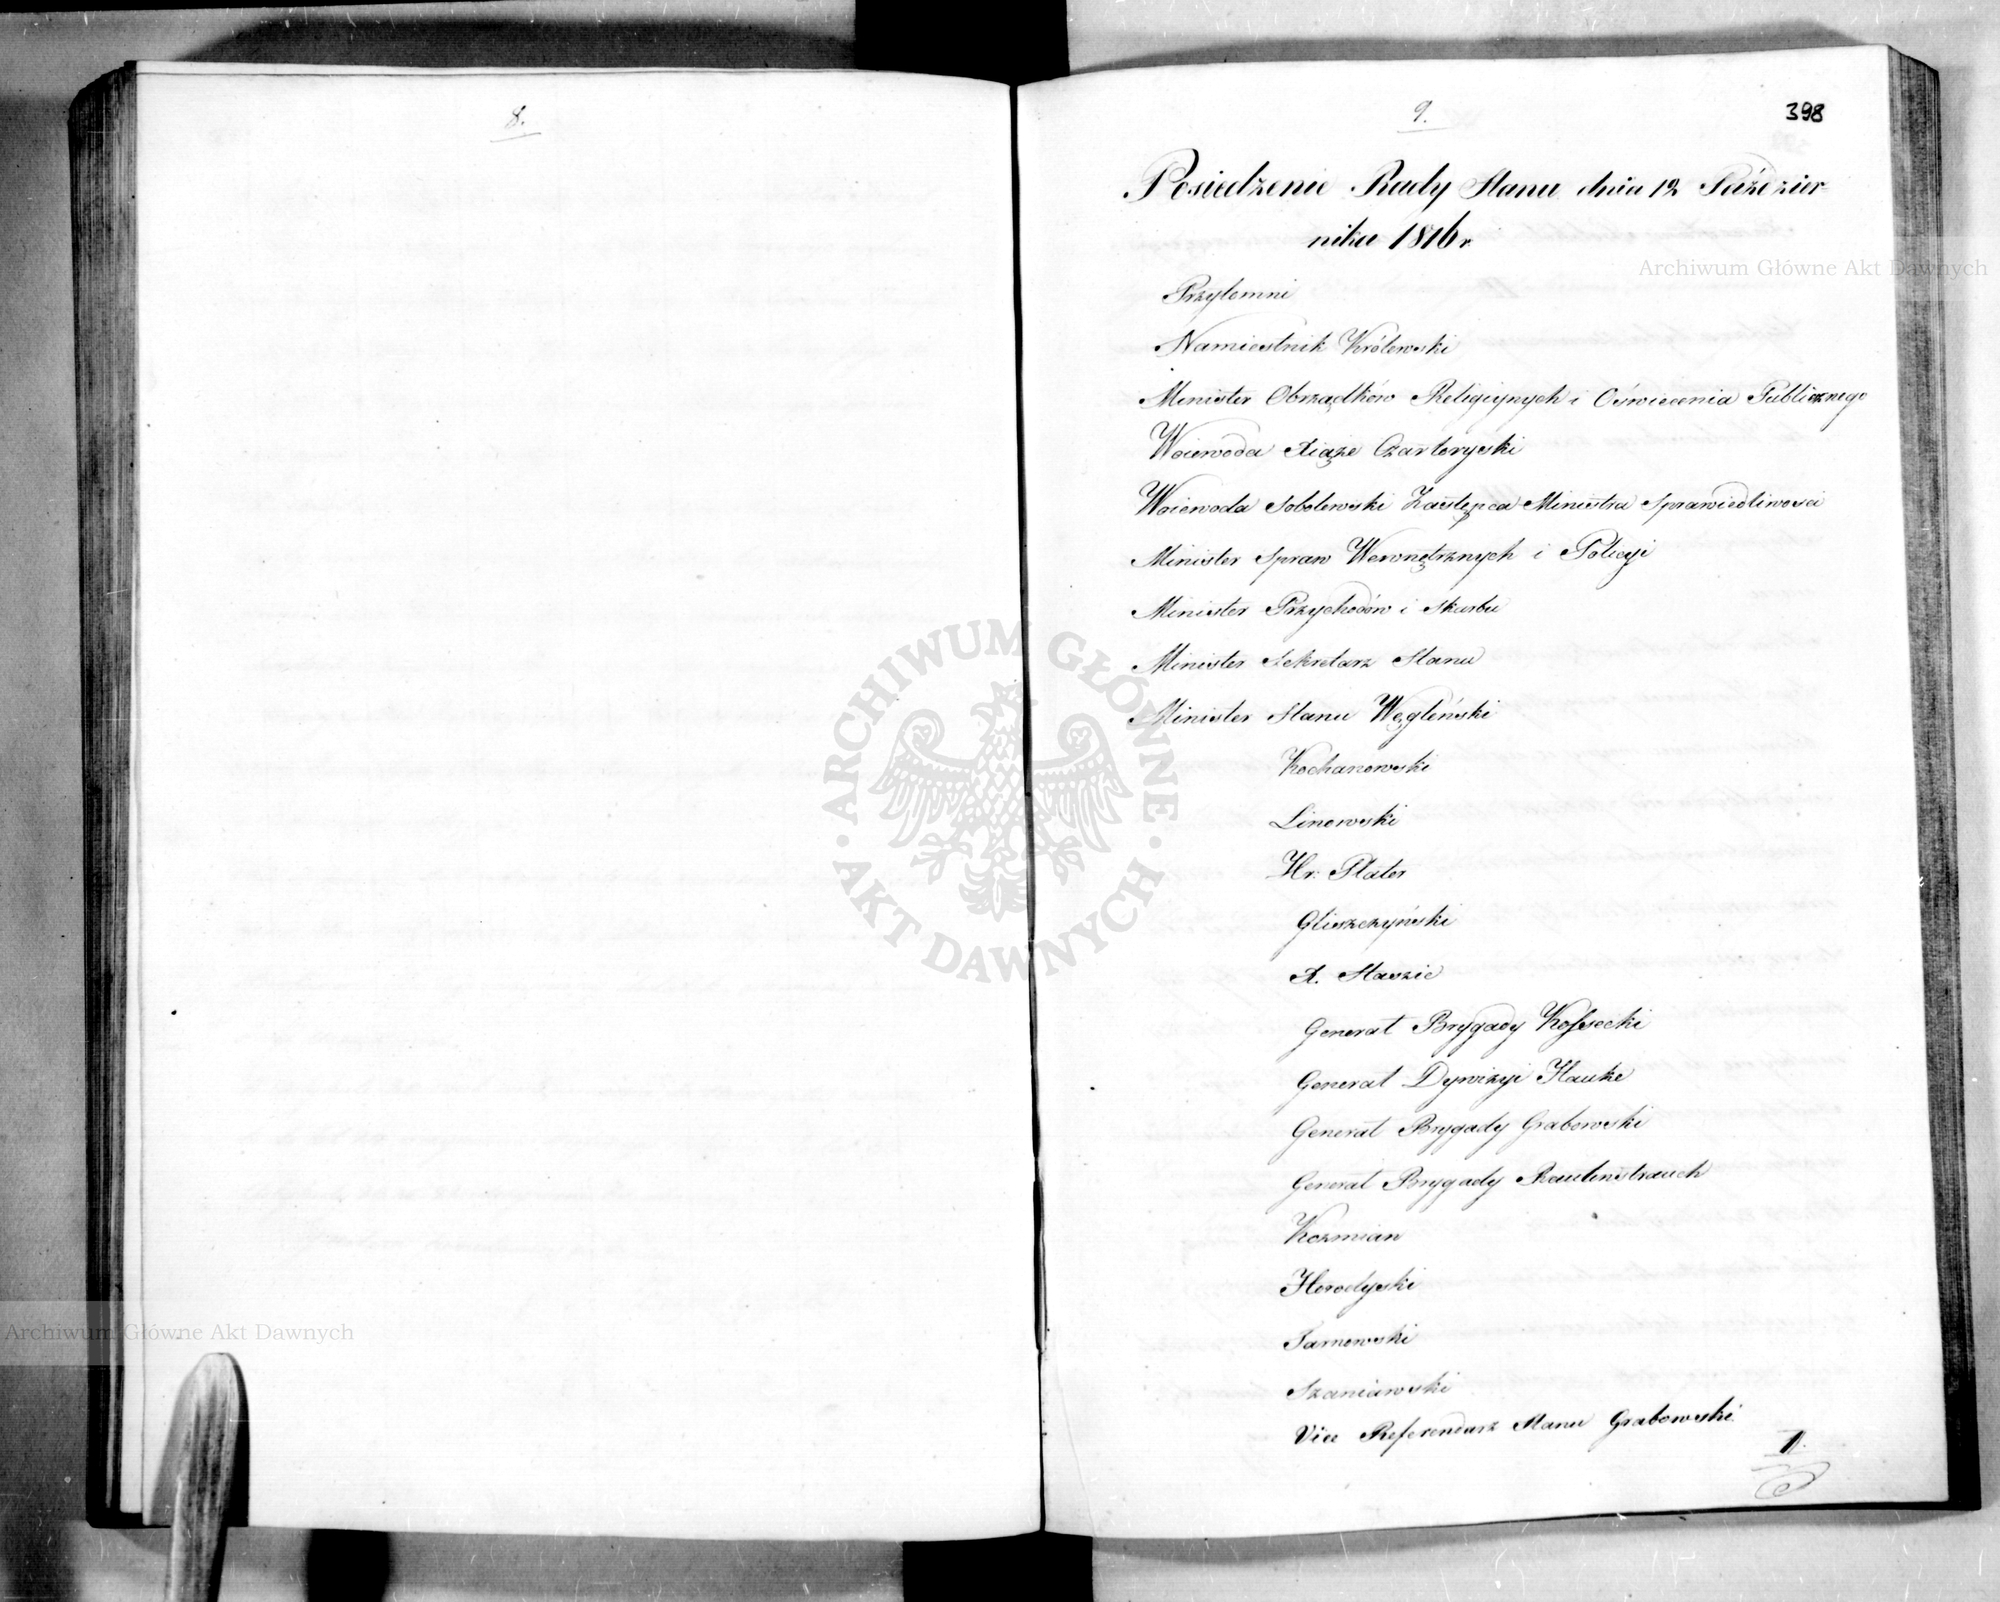 8.
9.
398
Posiedzenie Rady Stanu dnia 12 Paździer-
nika 1816 r.
Archiwum Główne Akt Dawnych
Przytomni
Namiestnik Królewski
Minister Obrządków Religiynych i Oświecenia Publicznego
Woiewoda Xiąże Czartoryski
Woiewoda Sobolewski Zastępca Ministra Sprawiedliwosci
Minister Spraw Wewnętrznych i Policyi
Minister Przychodów i Skarbu
Minister Sekretarz Stanu
Minister Stanu Węgleński
Kochanowski
Linowski
Hr. Plater
Gliszczyński
X. Staszic
Generał Brygady Kossecki
Generał Dywizyi Hauke
Generał Brygady Grabowski
Generał Brygady Rautenstrauch
Kozmian
Horodyski
Tarnowski
Szaniawski
Vice Referendarz Stanu Grabowski
II.
ARCHIWUM GŁÓWNE
AKT DAWNYCH
Archiwum Główne Akt Dawnych